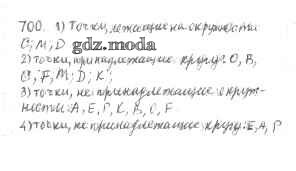 700. 1) Точки, лежащие на окружности
C; M; D gdz.moda
2) точки, принадлежащие кругу: O, B,
C; F, M; D; K;
3) точки, не принадлежащие окруж-
ности: A, E, P, K, B, O, F
4) точки, не принадлежащие кругу: E, A, P